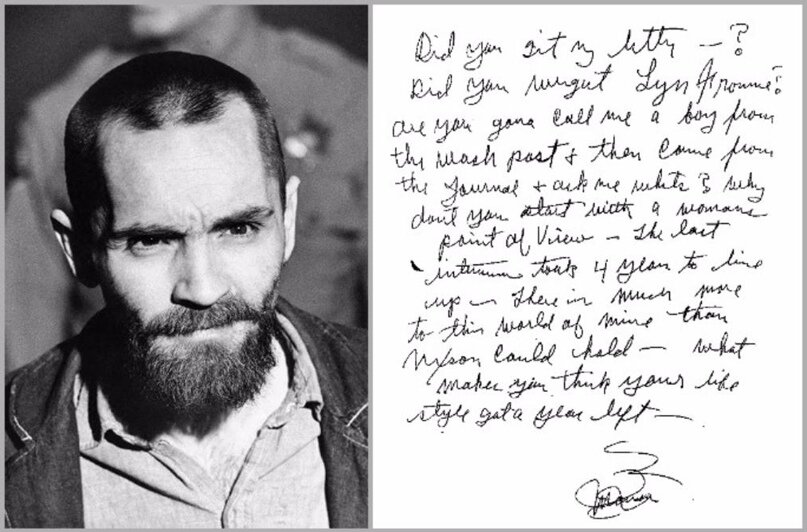 Did you git my letty — ?
Did you
are you gona call me a boy from
the wash post & then come from
the Journal & ask me whats & why
dont you start with a womans
point of View — The last
took 4 years to line
up — There is much more
to this world of mine than
Nixson could hold — what
makes you think yours life
style got a year left —